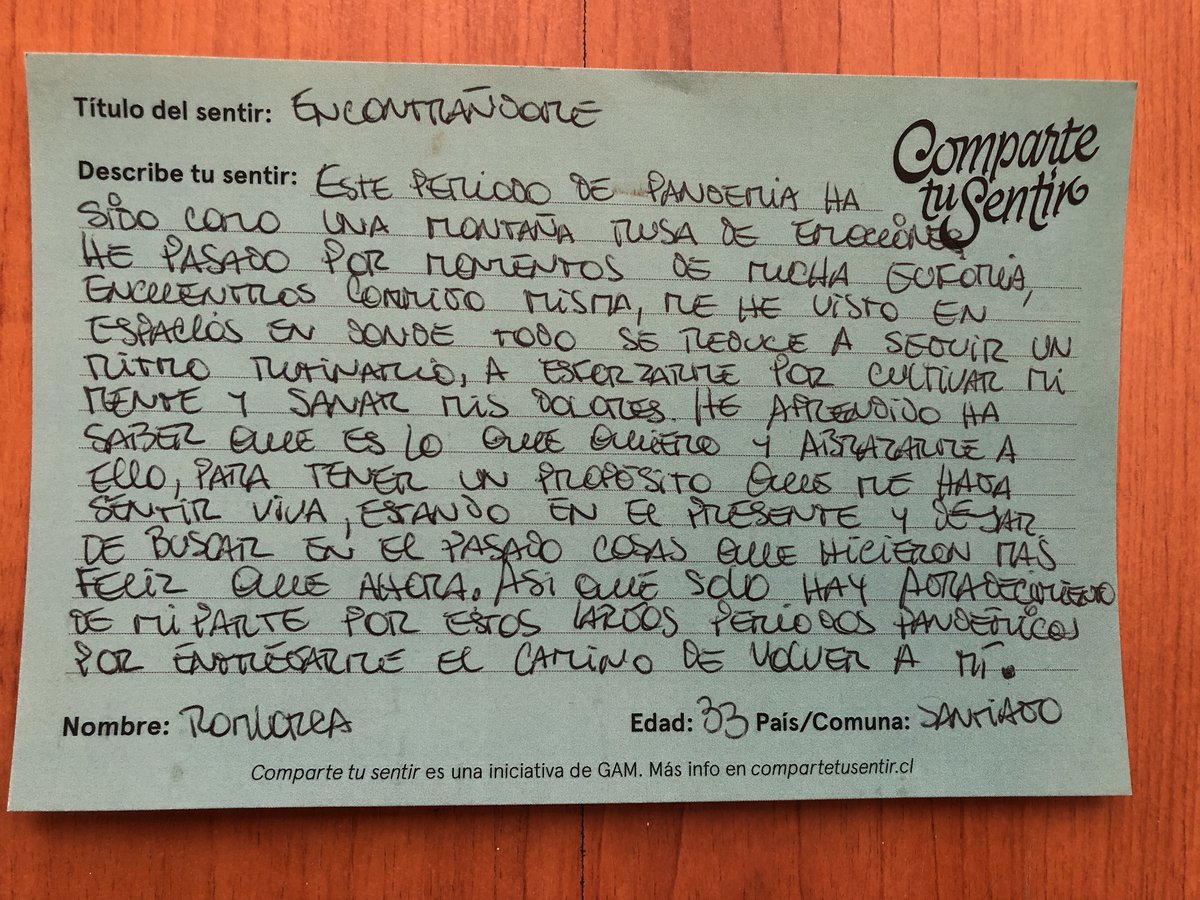 Título del sentir: ENCONTRÁNDOME
Comparte
tu Sentir
Describe tu sentir: ESTE PERIODO DE PANDEMIA HA
SIDO COMO UNA MONTAÑA RUSA DE EMOCIONES
HE PASADO POR MOMENTOS DE MUCHA EUFORIA,
ENCUENTROS CONMIGO MISMA, ME HE VISTO EN
ESPACIOS EN DONDE TODO SE REDUCE A SEGUIR UN
RITMO RUTINARIO, A ESFORZARME POR CULTIVAR MI
MENTE Y SANAR MIS DOLORES. HE APRENDIDO HA
SABER QUE ES LO QUE QUIERO Y ABRAZARME A
ELLO, PARA TENER UN PROPÓSITO QUE ME HAGA
SENTIR VIVA, ESTANDO EN EL PRESENTE Y DEJAR
DE BUSCAR EN EL PASADO COSAS QUE HICIERON MAS
FELIZ QUE AHORA. ASI QUE SOLO HAY AGRADECIMIENTO
DE MI PARTE POR ESTOS LARGOS PERIODOS PANDÉMICOS
POR ENTREGARME EL CAMINO DE VOLVER A MÍ.
Nombre: Edad: 33 País/Comuna: SANTIAGO
Comparte tu sentir es una iniciativa de GAM. Más info en compartetusentir.cl